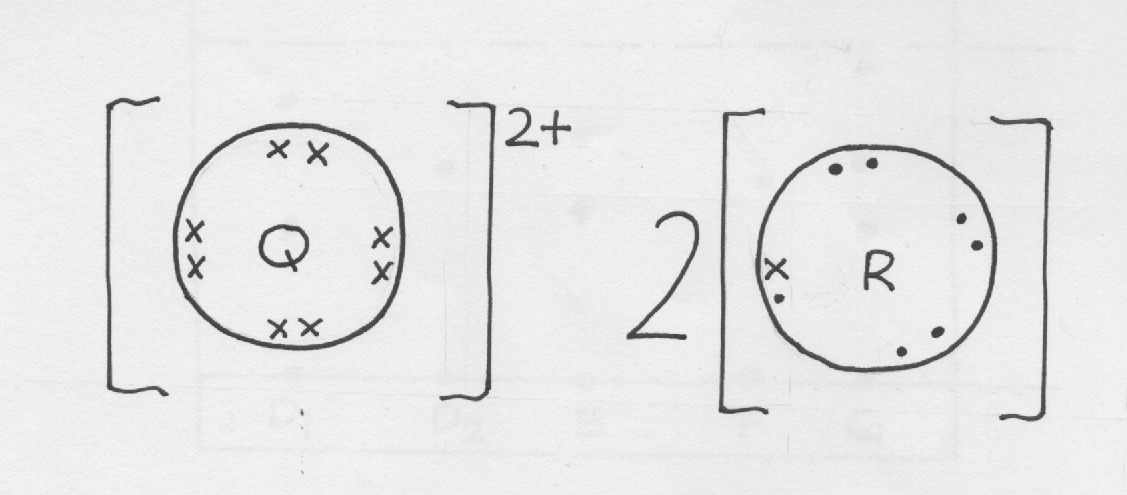 [Q]2+ 2[R]